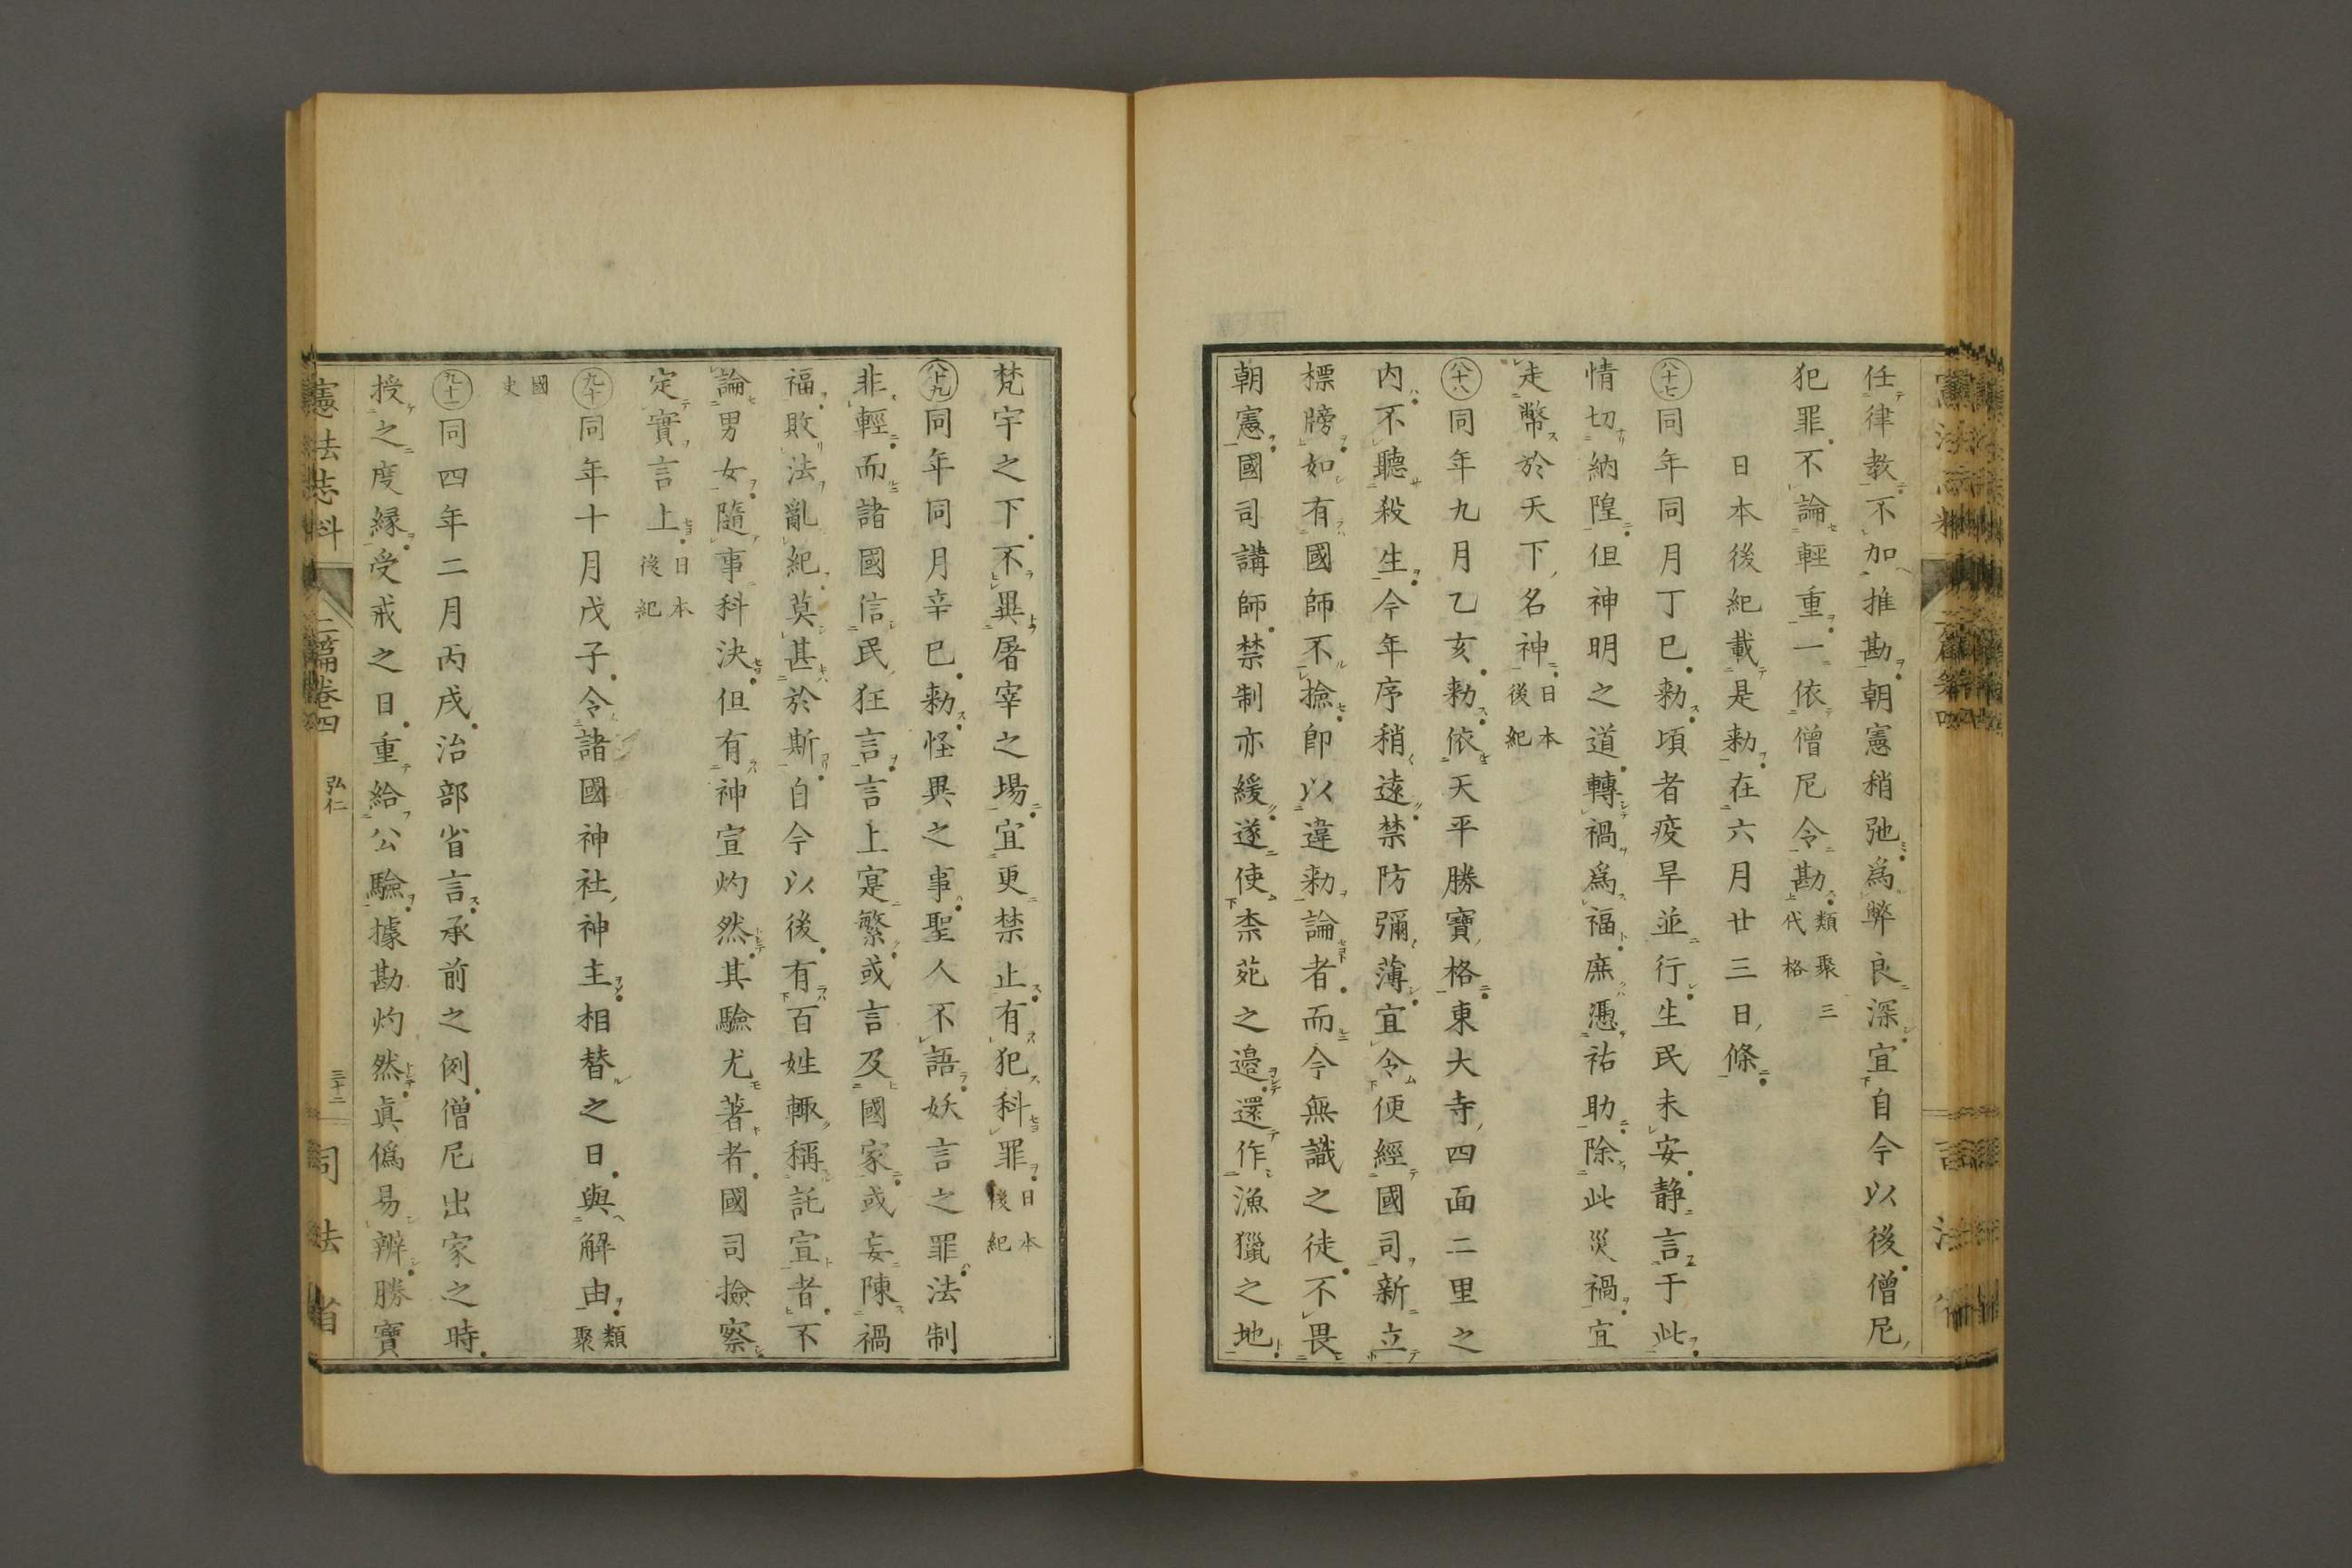 任律教不加推勘朝憲稍弛爲弊良深宜自今以後僧尼
犯罪不論輕重一依僧尼令勘類聚三代格
日本後紀載是勅在六月廿三日條
八十七同年同月丁巳勅頃者疫旱並行生民未安靜言于此
情切納隍但神明之道轉禍爲福庶憑祐助除此災禍宜
走幣於天下名神日本後紀
八十八同年九月乙亥勅依天平勝寶格東大寺四面二里之
内不聽殺生今年序稍遠禁防彌薄宜令便經國司新立
標牓如有國師不撿卽以違勅論者而今無識之徒不畏
朝憲國司講師禁制亦緩遂使柰苑之邊還作漁獵之地
梵宇之下不異屠宰之場宜更禁止有犯科罪日本後紀
八十九同年同月辛巳勅怪異之事聖人不語妖言之罪法制
非輕而諸國信民狂言言上寔繁或言及國家或妄陳禍
福敗法亂紀莫甚於斯自今以後有百姓輙稱託宣者不
論男女隨事科決但有神宣灼然其驗尤著者國司撿察
定實言上日本後紀
九十同年十月戊子令諸國神社神主相替之日與解由類聚
國史
九十一同四年二月丙戌治部省言承前之例僧尼出家之時
授之度縁受戒之日重給公驗據勘灼然眞僞易辨勝寶
憲法志料 二篇卷四 弘仁 三十二 司法省